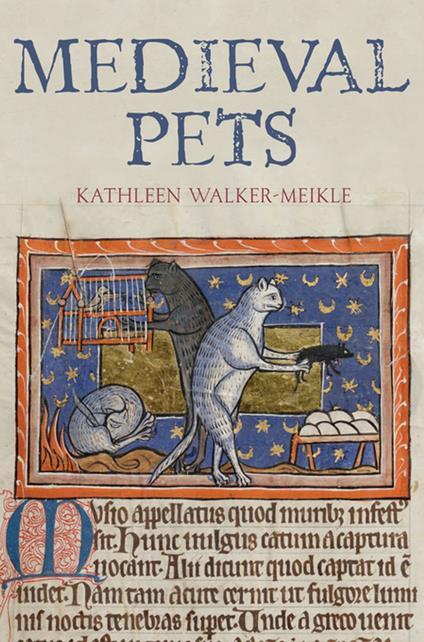 MEDIEVAL
PETS
KATHLEEN WALKER-MEIKLE
Musio appellatus quod muribꝫ infestꝰ
sit. Hunc uulgus catum a captura
uocant. Alii dicunt quod captat id ē
uidet. Nam tam acute cernit ut fulgore lumi
nis noctis tenebras supet. Unde a greco uenit